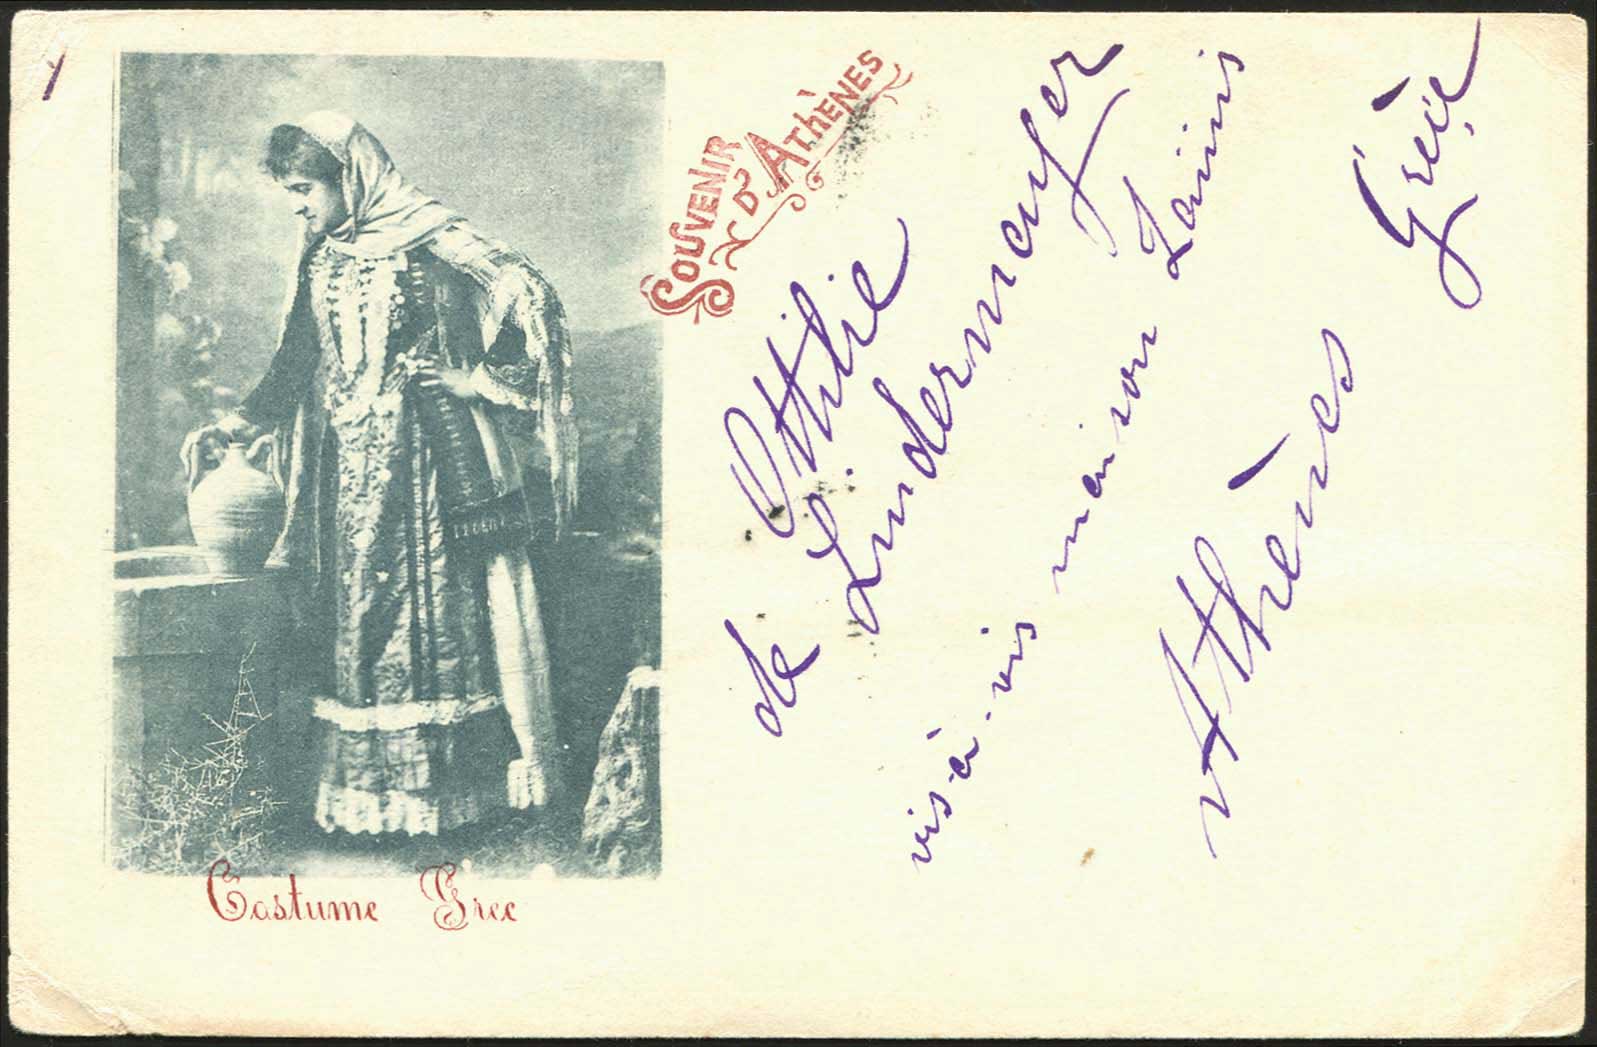 SOUVENIR
D'AThÈNES
Ottilie
de Lindermayer
vis-à-vis maison
Athènes Grèce
Costume Grec